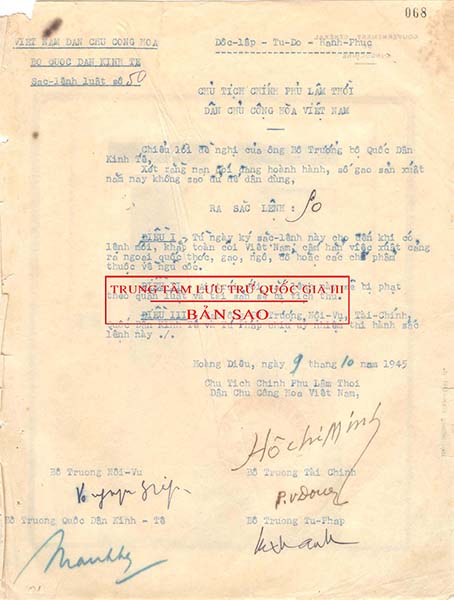 068
VIỆT NAM DÂN CHỦ CỘNG HÒA
Độc-lập - Tự-Do - Hạnh-Phúc
BỘ QUỐC DÂN KINH TẾ
Sắc-lệnh luật số 50
CHỦ TỊCH CHÍNH PHỦ LÂM THỜI
DÂN CHỦ CỘNG HÒA VIỆT NAM
Chiểu lời đề nghị của ông Bộ Trưởng bộ Quốc Dân
Kinh Tế,
Xét rằng nạn đói đang hoành hành, số gạo sản xuất
năm nay không sao đủ để dân dùng,
RA SẮC LỆNH: 50
ĐIỀU I - Từ ngày ký sắc-lệnh này cho đến khi có
lệnh mới, khắp toàn cõi Việt Nam, cấm hẳn việc xuất cảng
ra ngoại quốc thóc, gạo, ngô, đỗ hoặc các chế phẩm
thuộc về ngũ cốc.
bị phạt
theo quân luật và tài sản sẽ bị tịch thu.
TRUNG TÂM LƯU TRỮ QUỐC GIA III
BẢN SAO
ĐIỀU III Trưởng Nội-Vụ, Tài-Chính,
Quốc Dân Kinh Tế và Tư Pháp chịu uỷ nhiệm thi hành sắc
lệnh này ./.
Hoàng Diệu, ngày 9 tháng 10 năm 1945
Chủ Tịch Chính Phủ Lâm Thời
Dân Chủ Cộng Hòa Việt Nam,
Hồ Chí Minh
Bộ Trưởng Nội-Vụ
Bộ Trưởng Tài Chính
P.V Đồng
Bộ Trưởng Quốc Dân Kinh - Tế
Bộ Trưởng Tư-Pháp